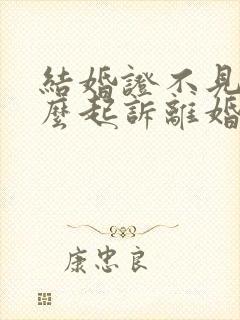 結婚證不見
麼起訴離婚
康忠良